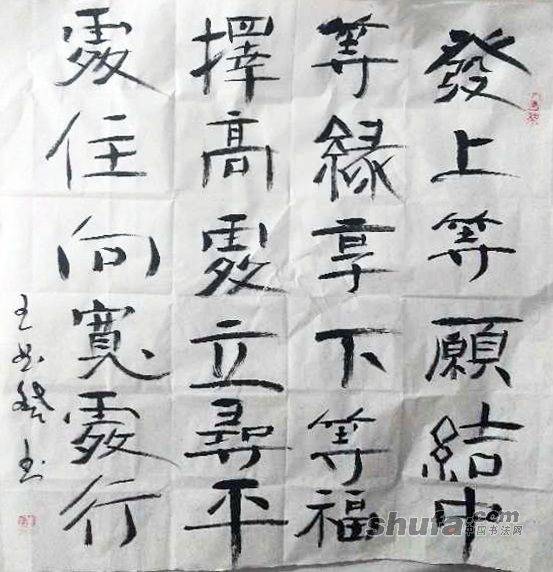 發上等願結中
等緣享下等福
擇高處立尋平
處住向寬處行
shufa.com
中国书法网